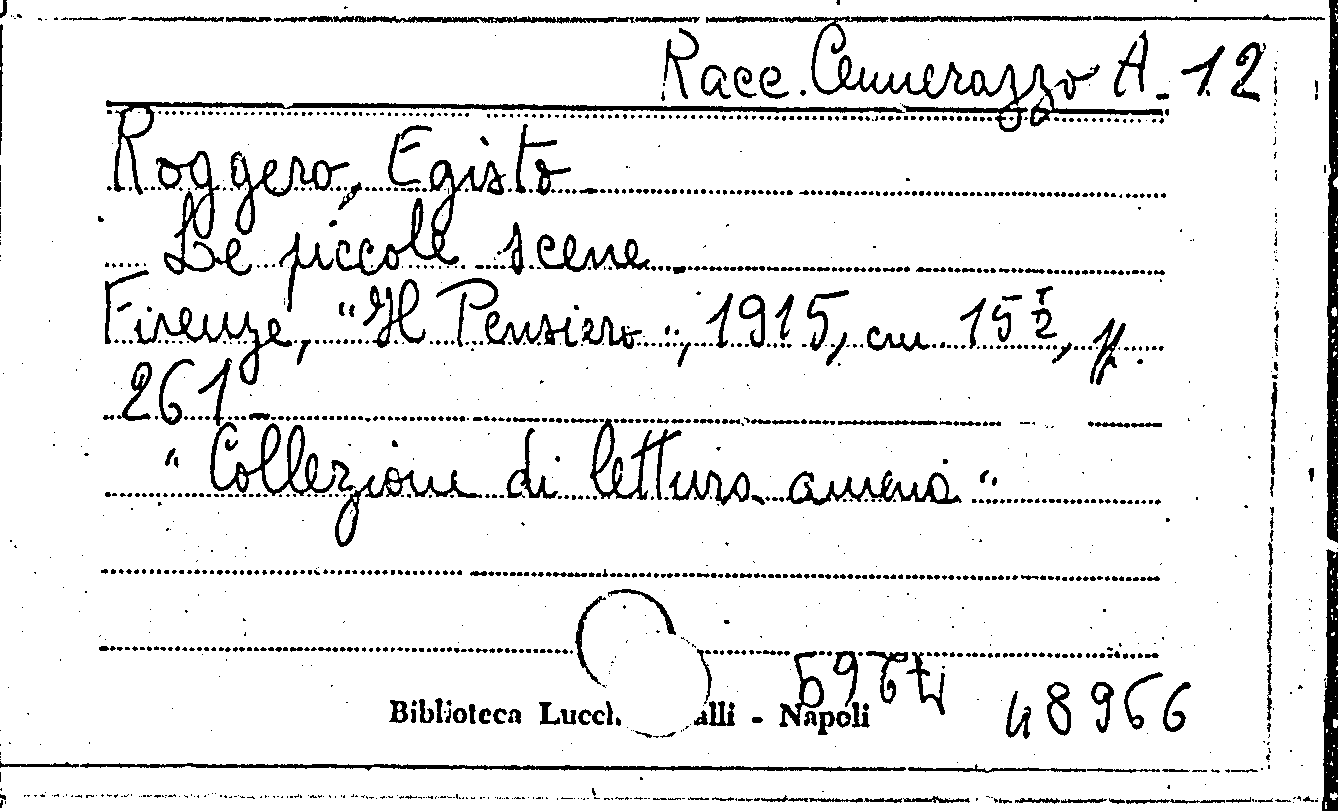 Racc. Cennerazzo A-12
Roggero, Egisto
Le piccole scene
Firenze, "Il Pensiero", 1915, cm. 15 1/2, pp.
261-
"Collezione di lettura amena"
48966
Biblioteca Lucch alli - Napoli